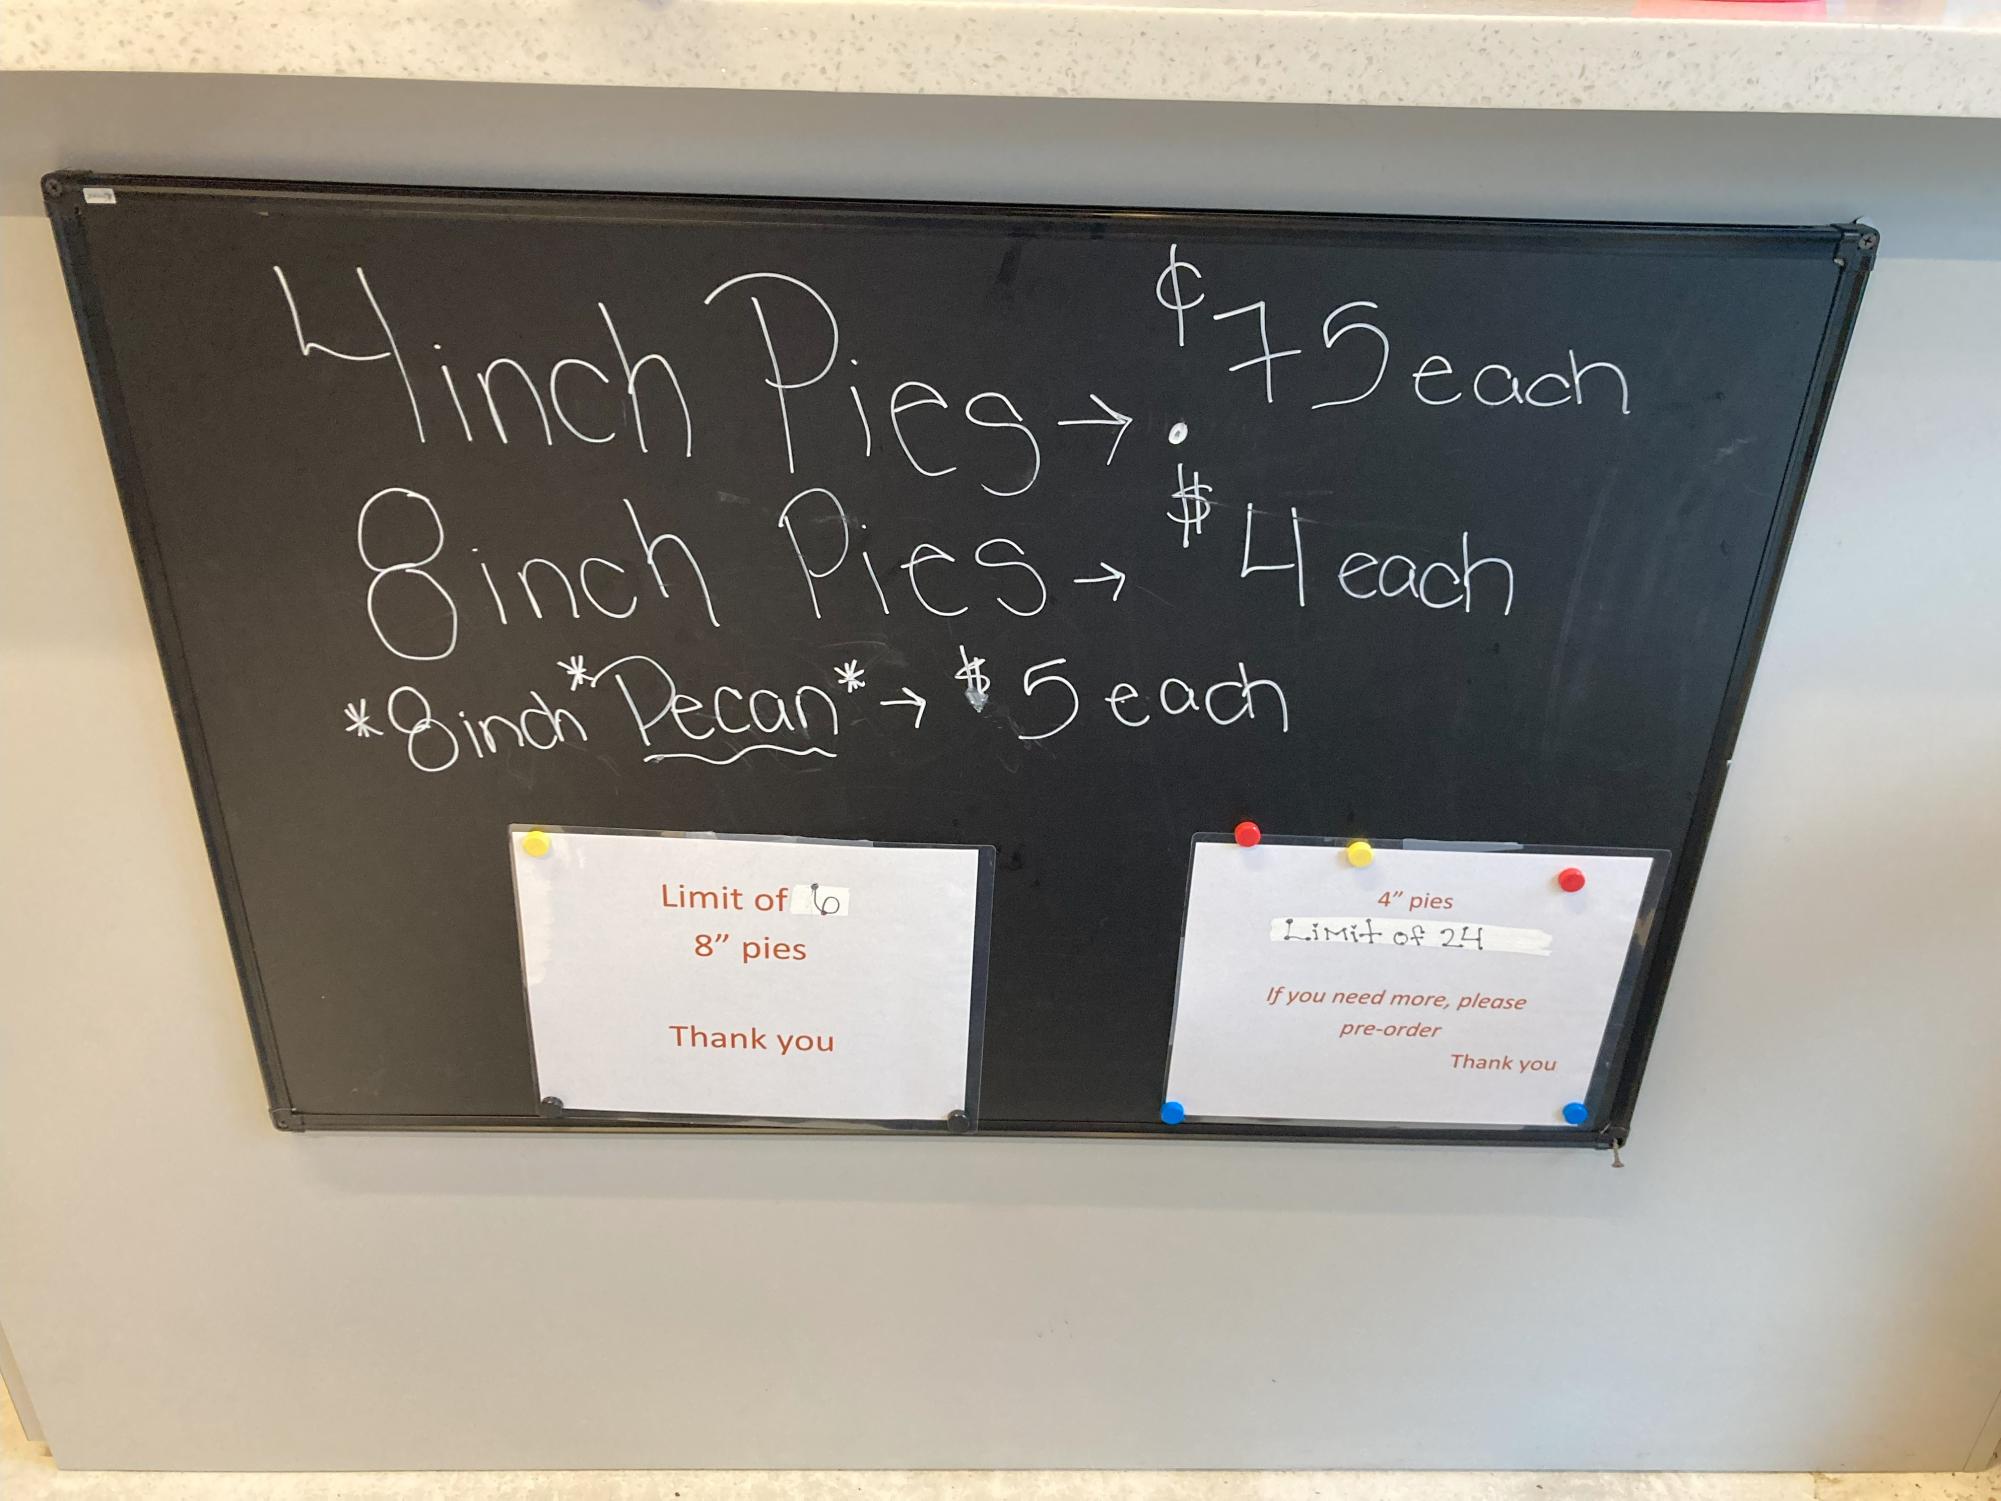 4inch Pies → ¢.75 each
8inch Pies → $4 each
*8inch *Pecan* → $5 each
Limit of 6
8” pies
Thank you
4” pies
Limit of 24
If you need more, please
pre-order
Thank you